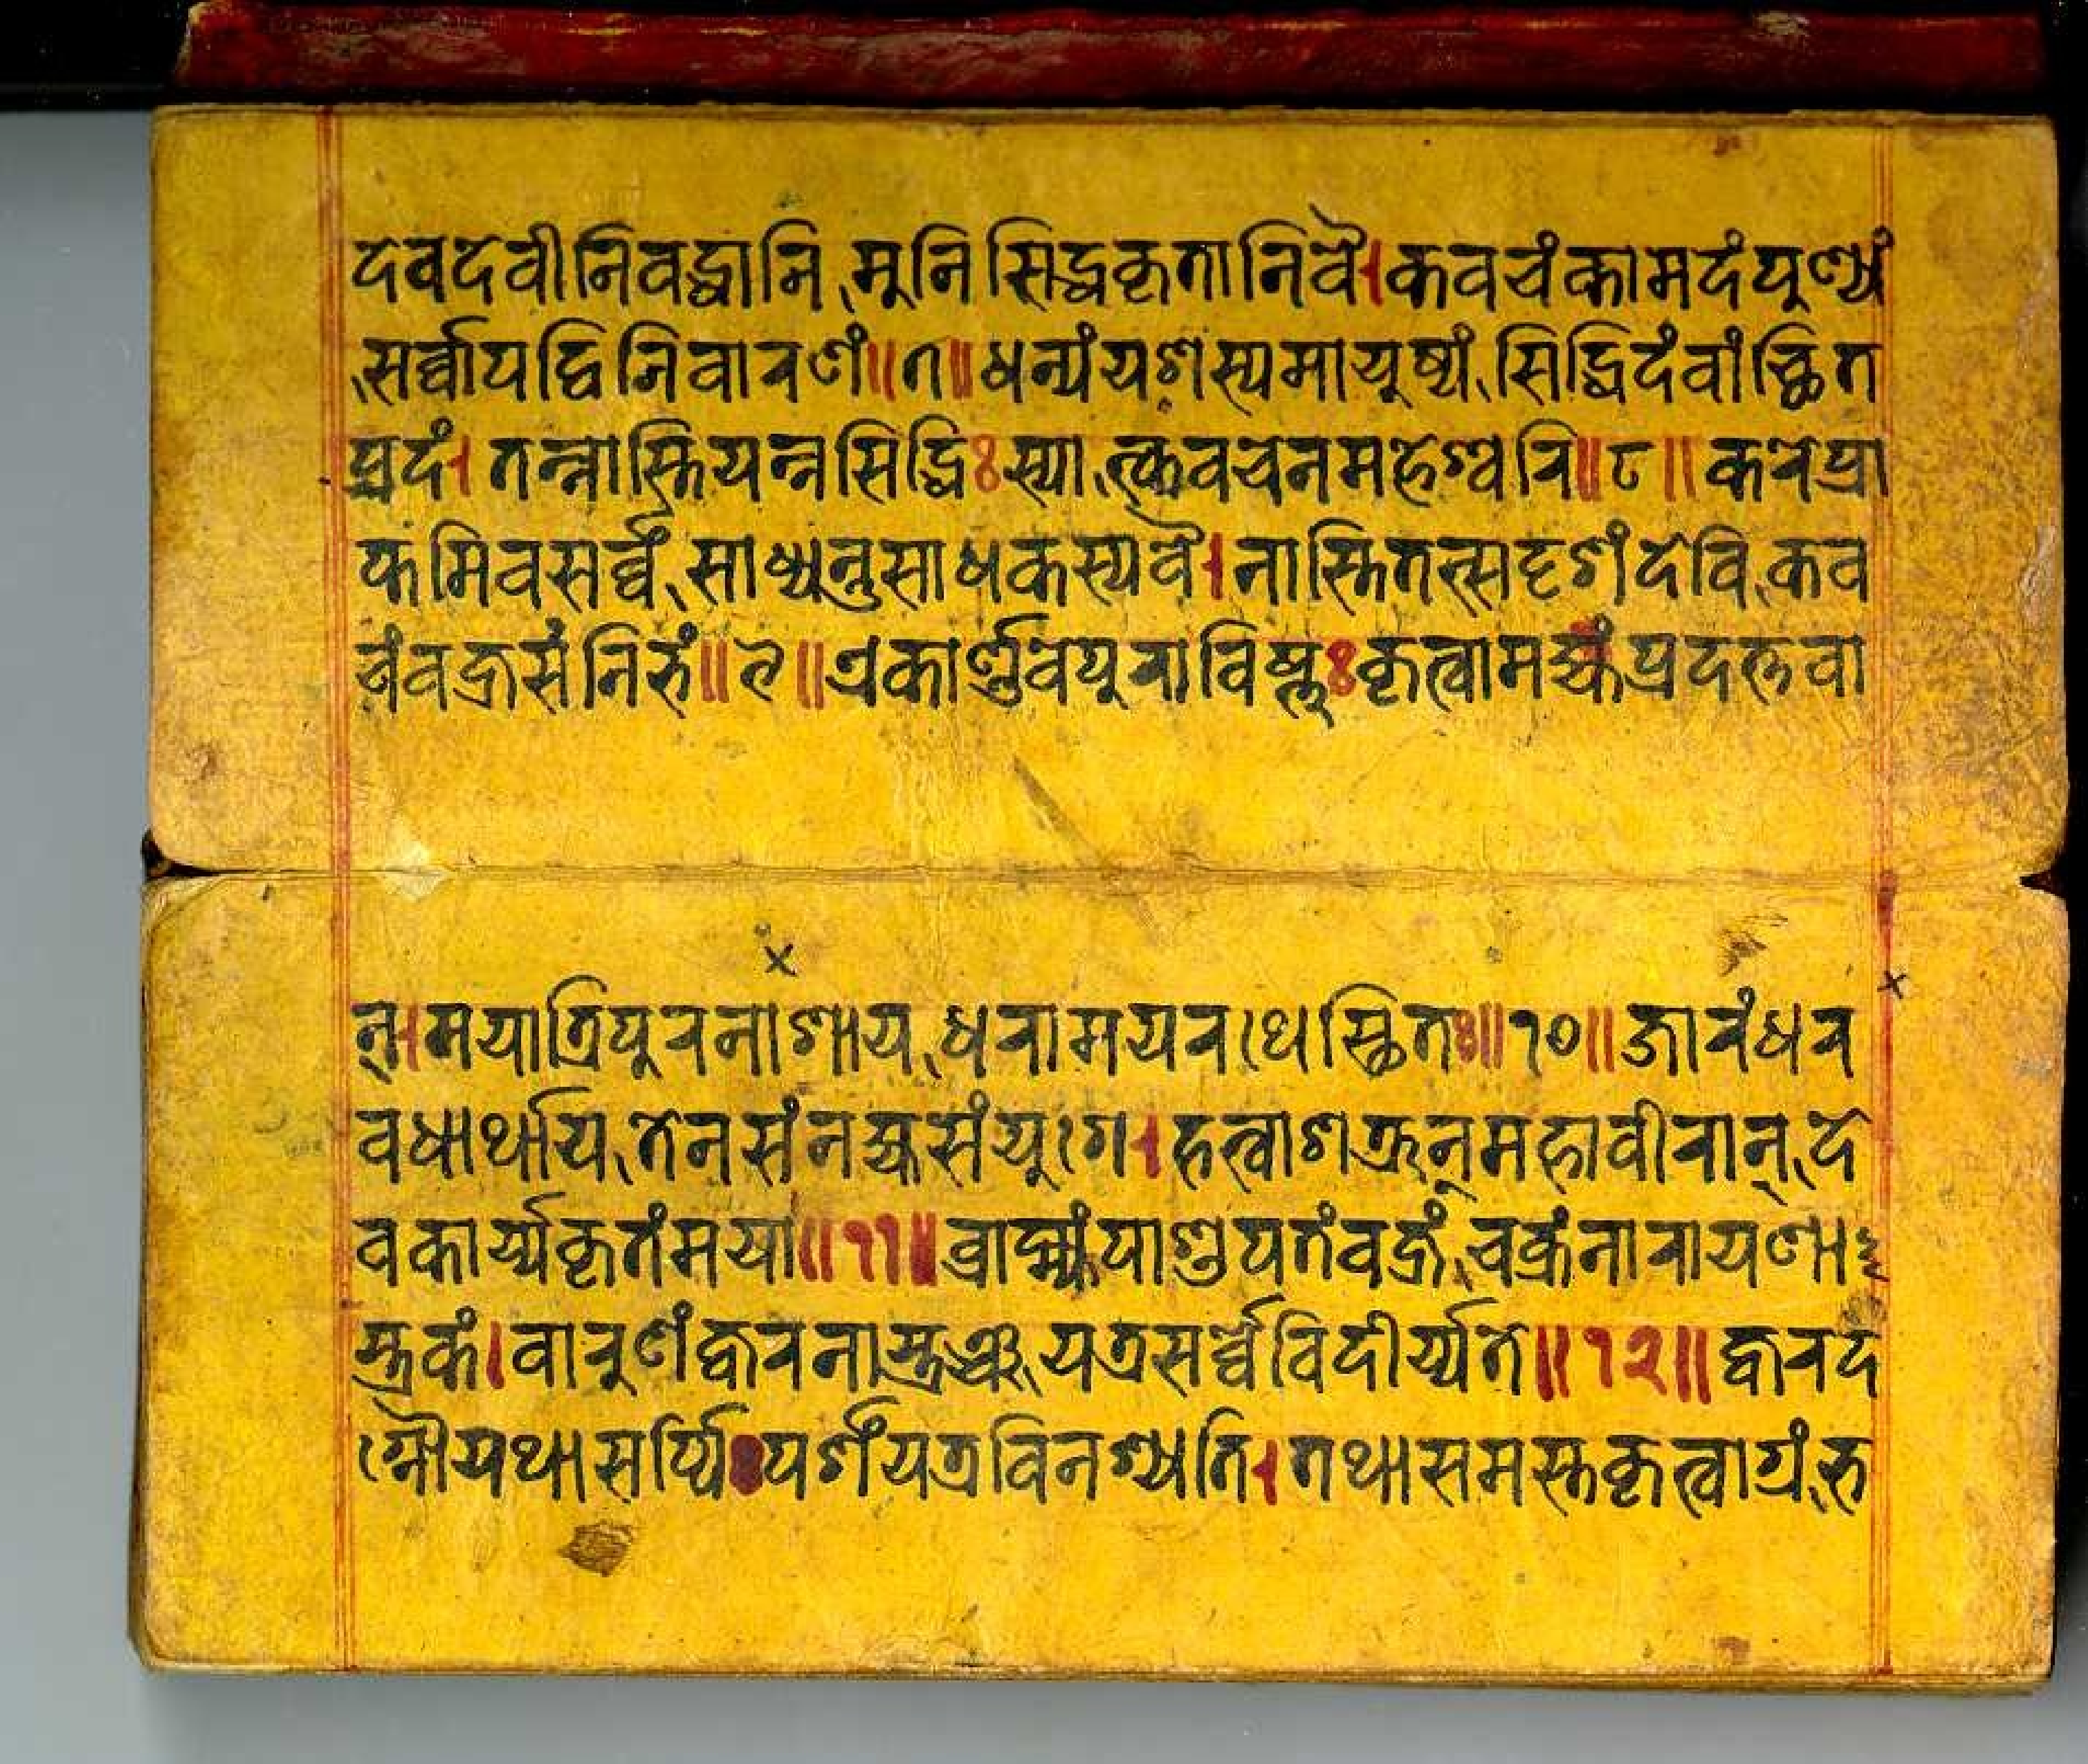 देवदेवीनिवद्धानि मुनिसिद्धकृतानिवै।कवचंकामदंपुण्यं
सर्व्वापद्विनिवारणं॥७॥धन्यंयशस्यमायुष्यं सिद्धिदंवांच्छित
प्रदं।तन्नास्तियन्नसिद्धिःस्या त्कवचेनमहेश्वरि॥८॥करेप्रा
कमिवसर्व्वं साध्यनुसाधकस्यवै।नास्तितत्सदृशंदेवि कव
चंवज्रसंनिभं॥९॥एकार्ण्णवेपुराविष्णुःकृत्वामह्यंप्रदत्तवा
न्।मयात्रिपुरनाशाय धरामयरथेस्थितः॥१०॥जारंधर
वधार्थाय तेनसंनह्यसंयुगे।हत्वाशत्रून्महावीरान् दे
वकार्य्यकृतंमया॥११॥व्राह्म्यंपाशुपतंवज्रं चक्रंनारायणा
स्त्रकं।वारुणंज्वरनास्त्रञ्च यत्रसर्व्वेविदीर्य्यते॥१२॥ज्वरद
ग्नौयथासर्प्पिःपर्शंयत्रविनश्यति।तथासमस्तकृत्वाग्रं भ